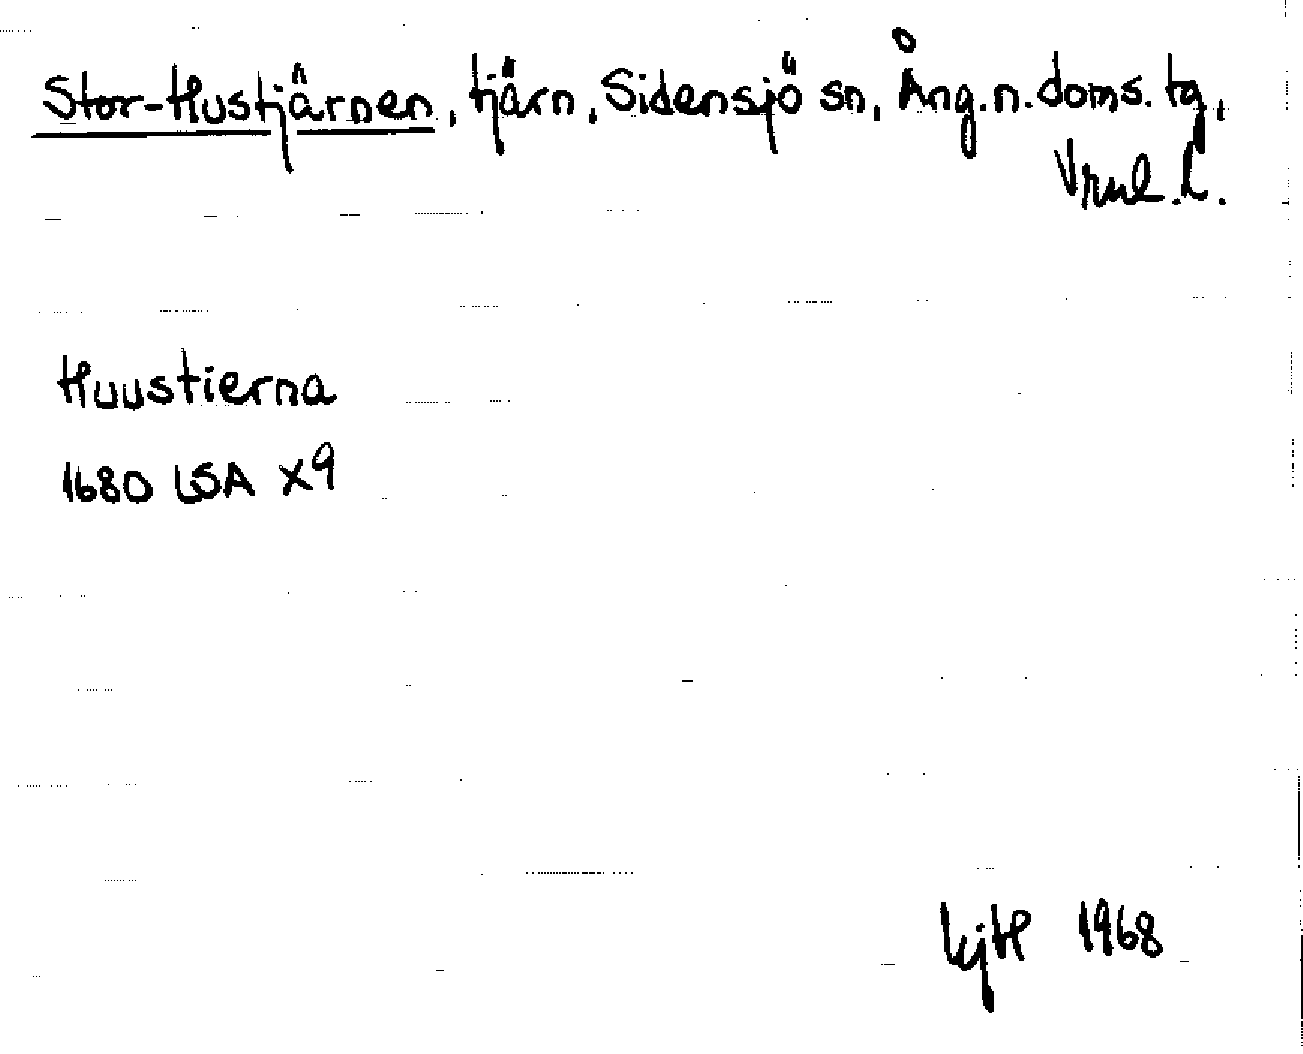 Stor-Hustjärnen, tjärn, Sidensjö sn, Ång.n.doms.tg,
Vrnl.L.
Huustierna
1680 LSA X9
1968